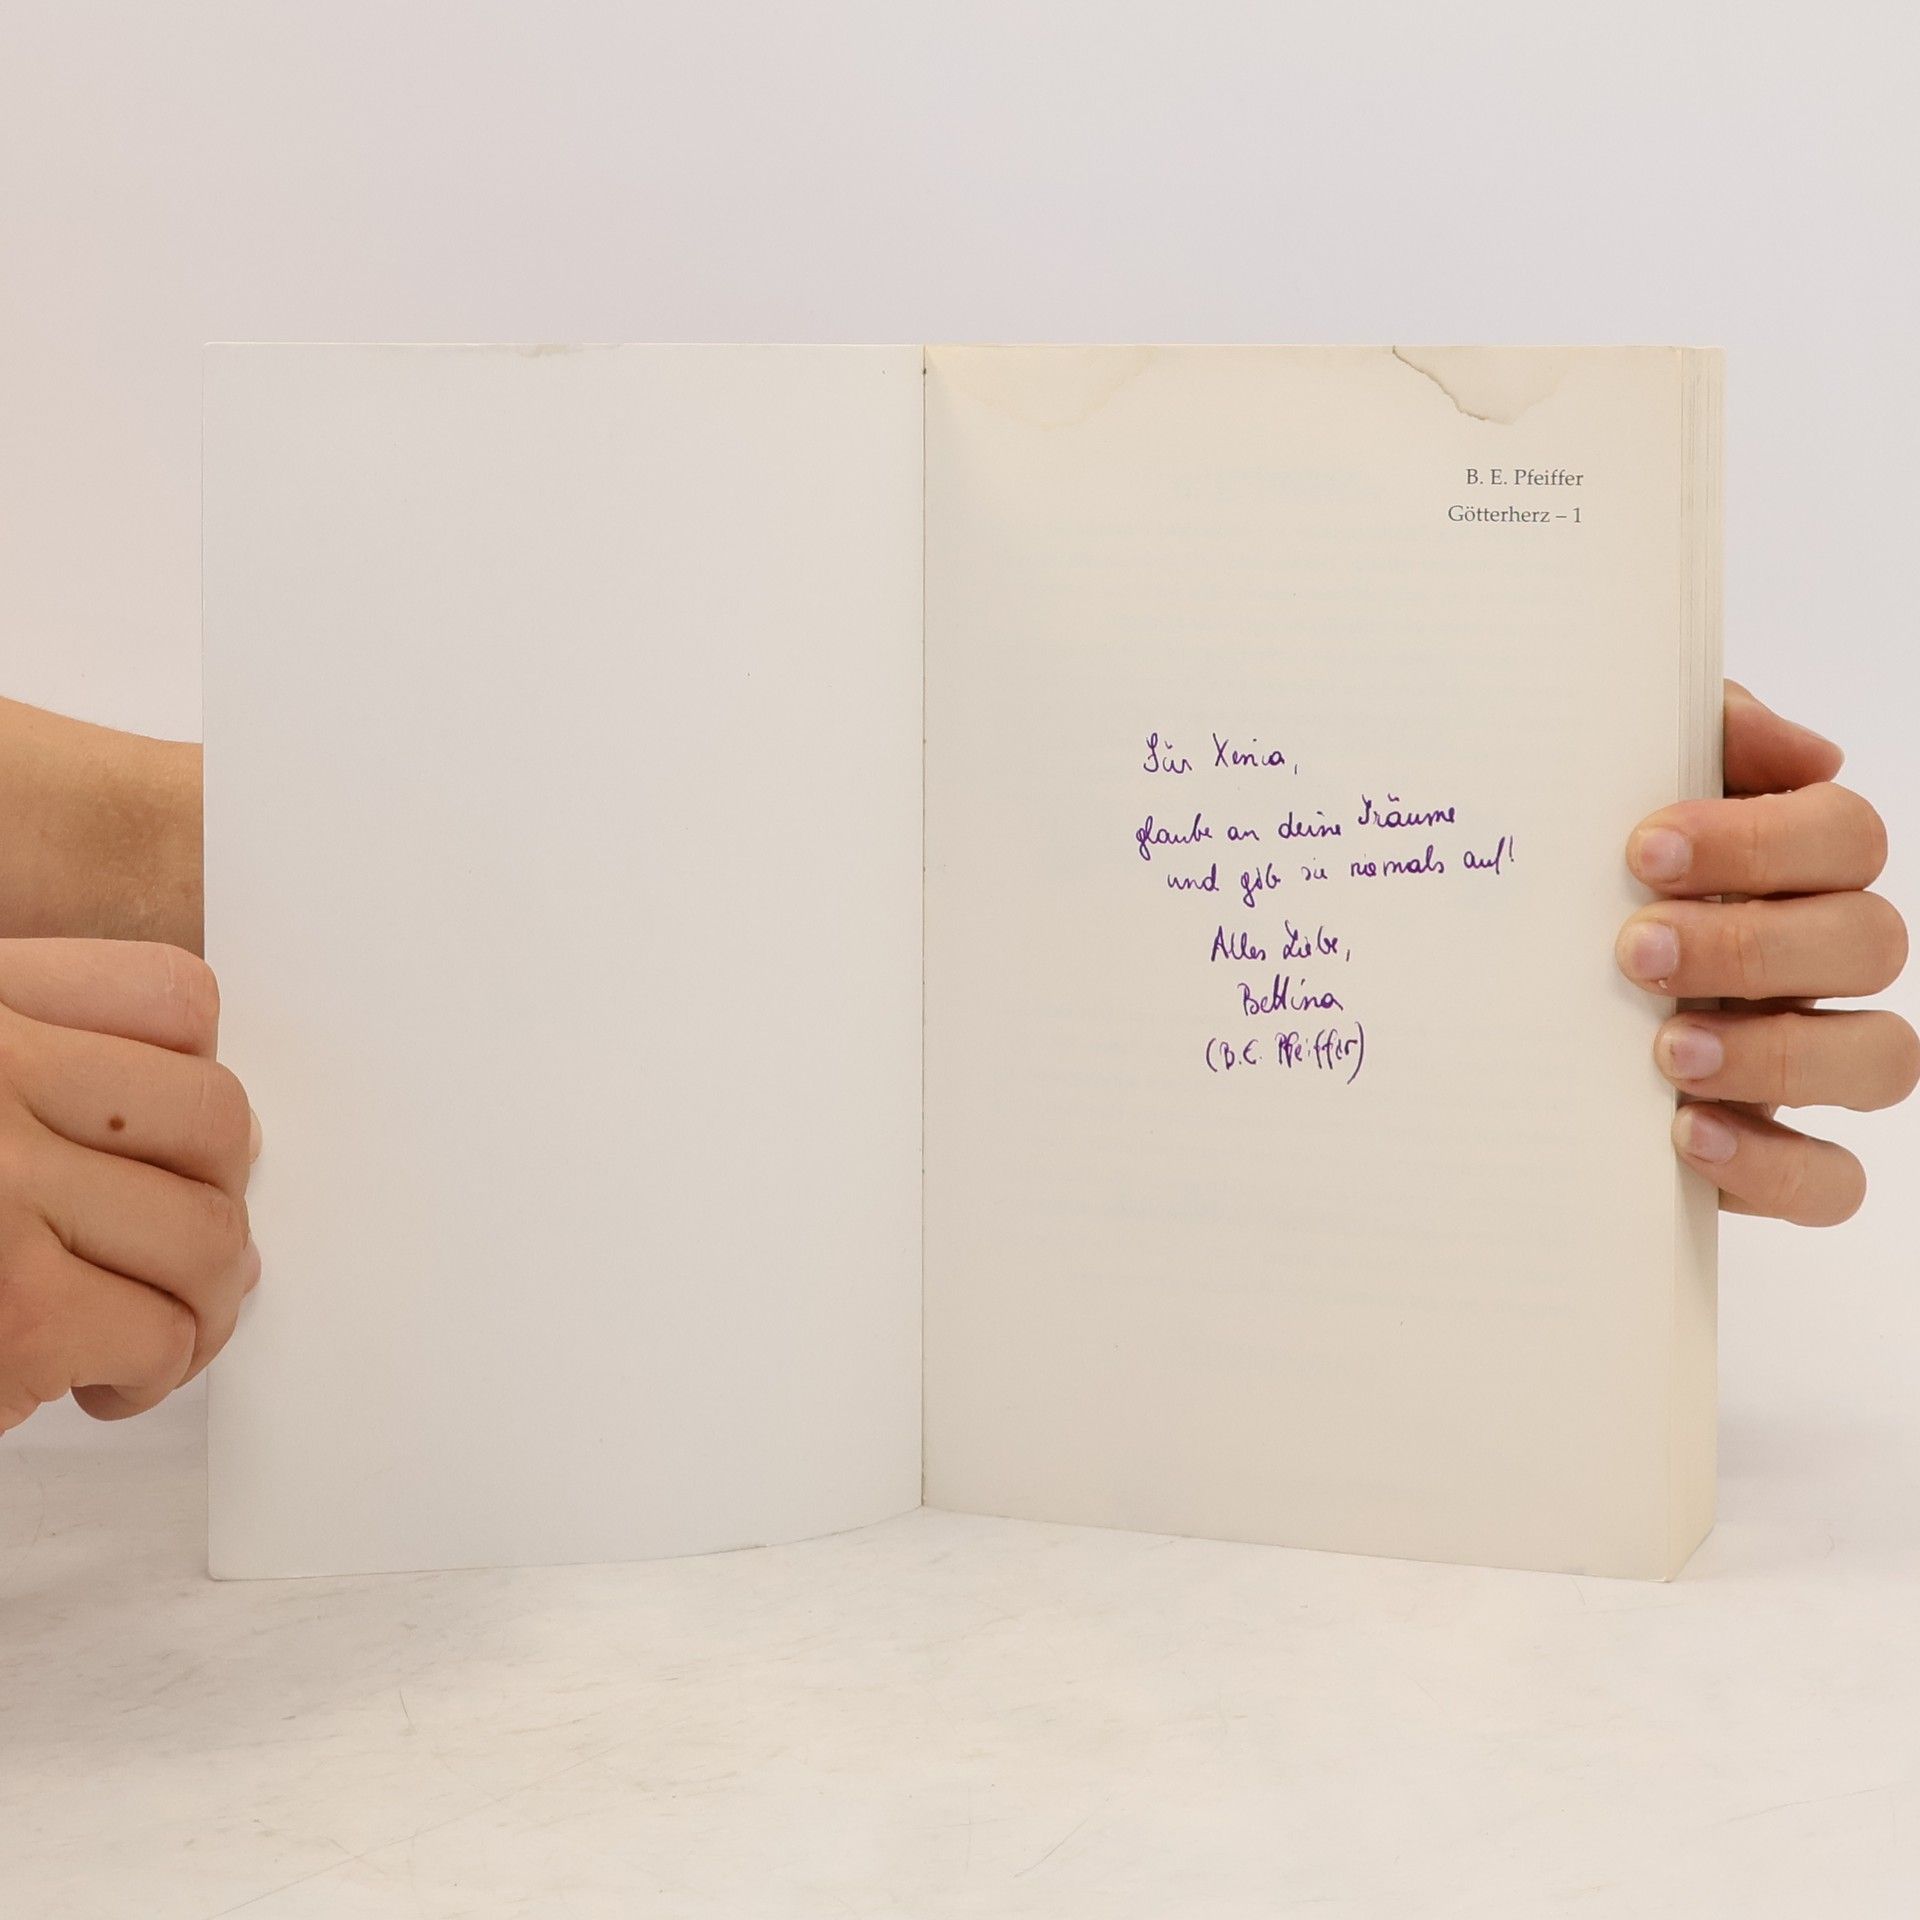 B. E. Pfeiffer
Götterherz – 1
Für Xenia,
glaube an deine Träume
und gib sie niemals auf!
Alles Liebe,
Bettina
(B.E. Pfeiffer)